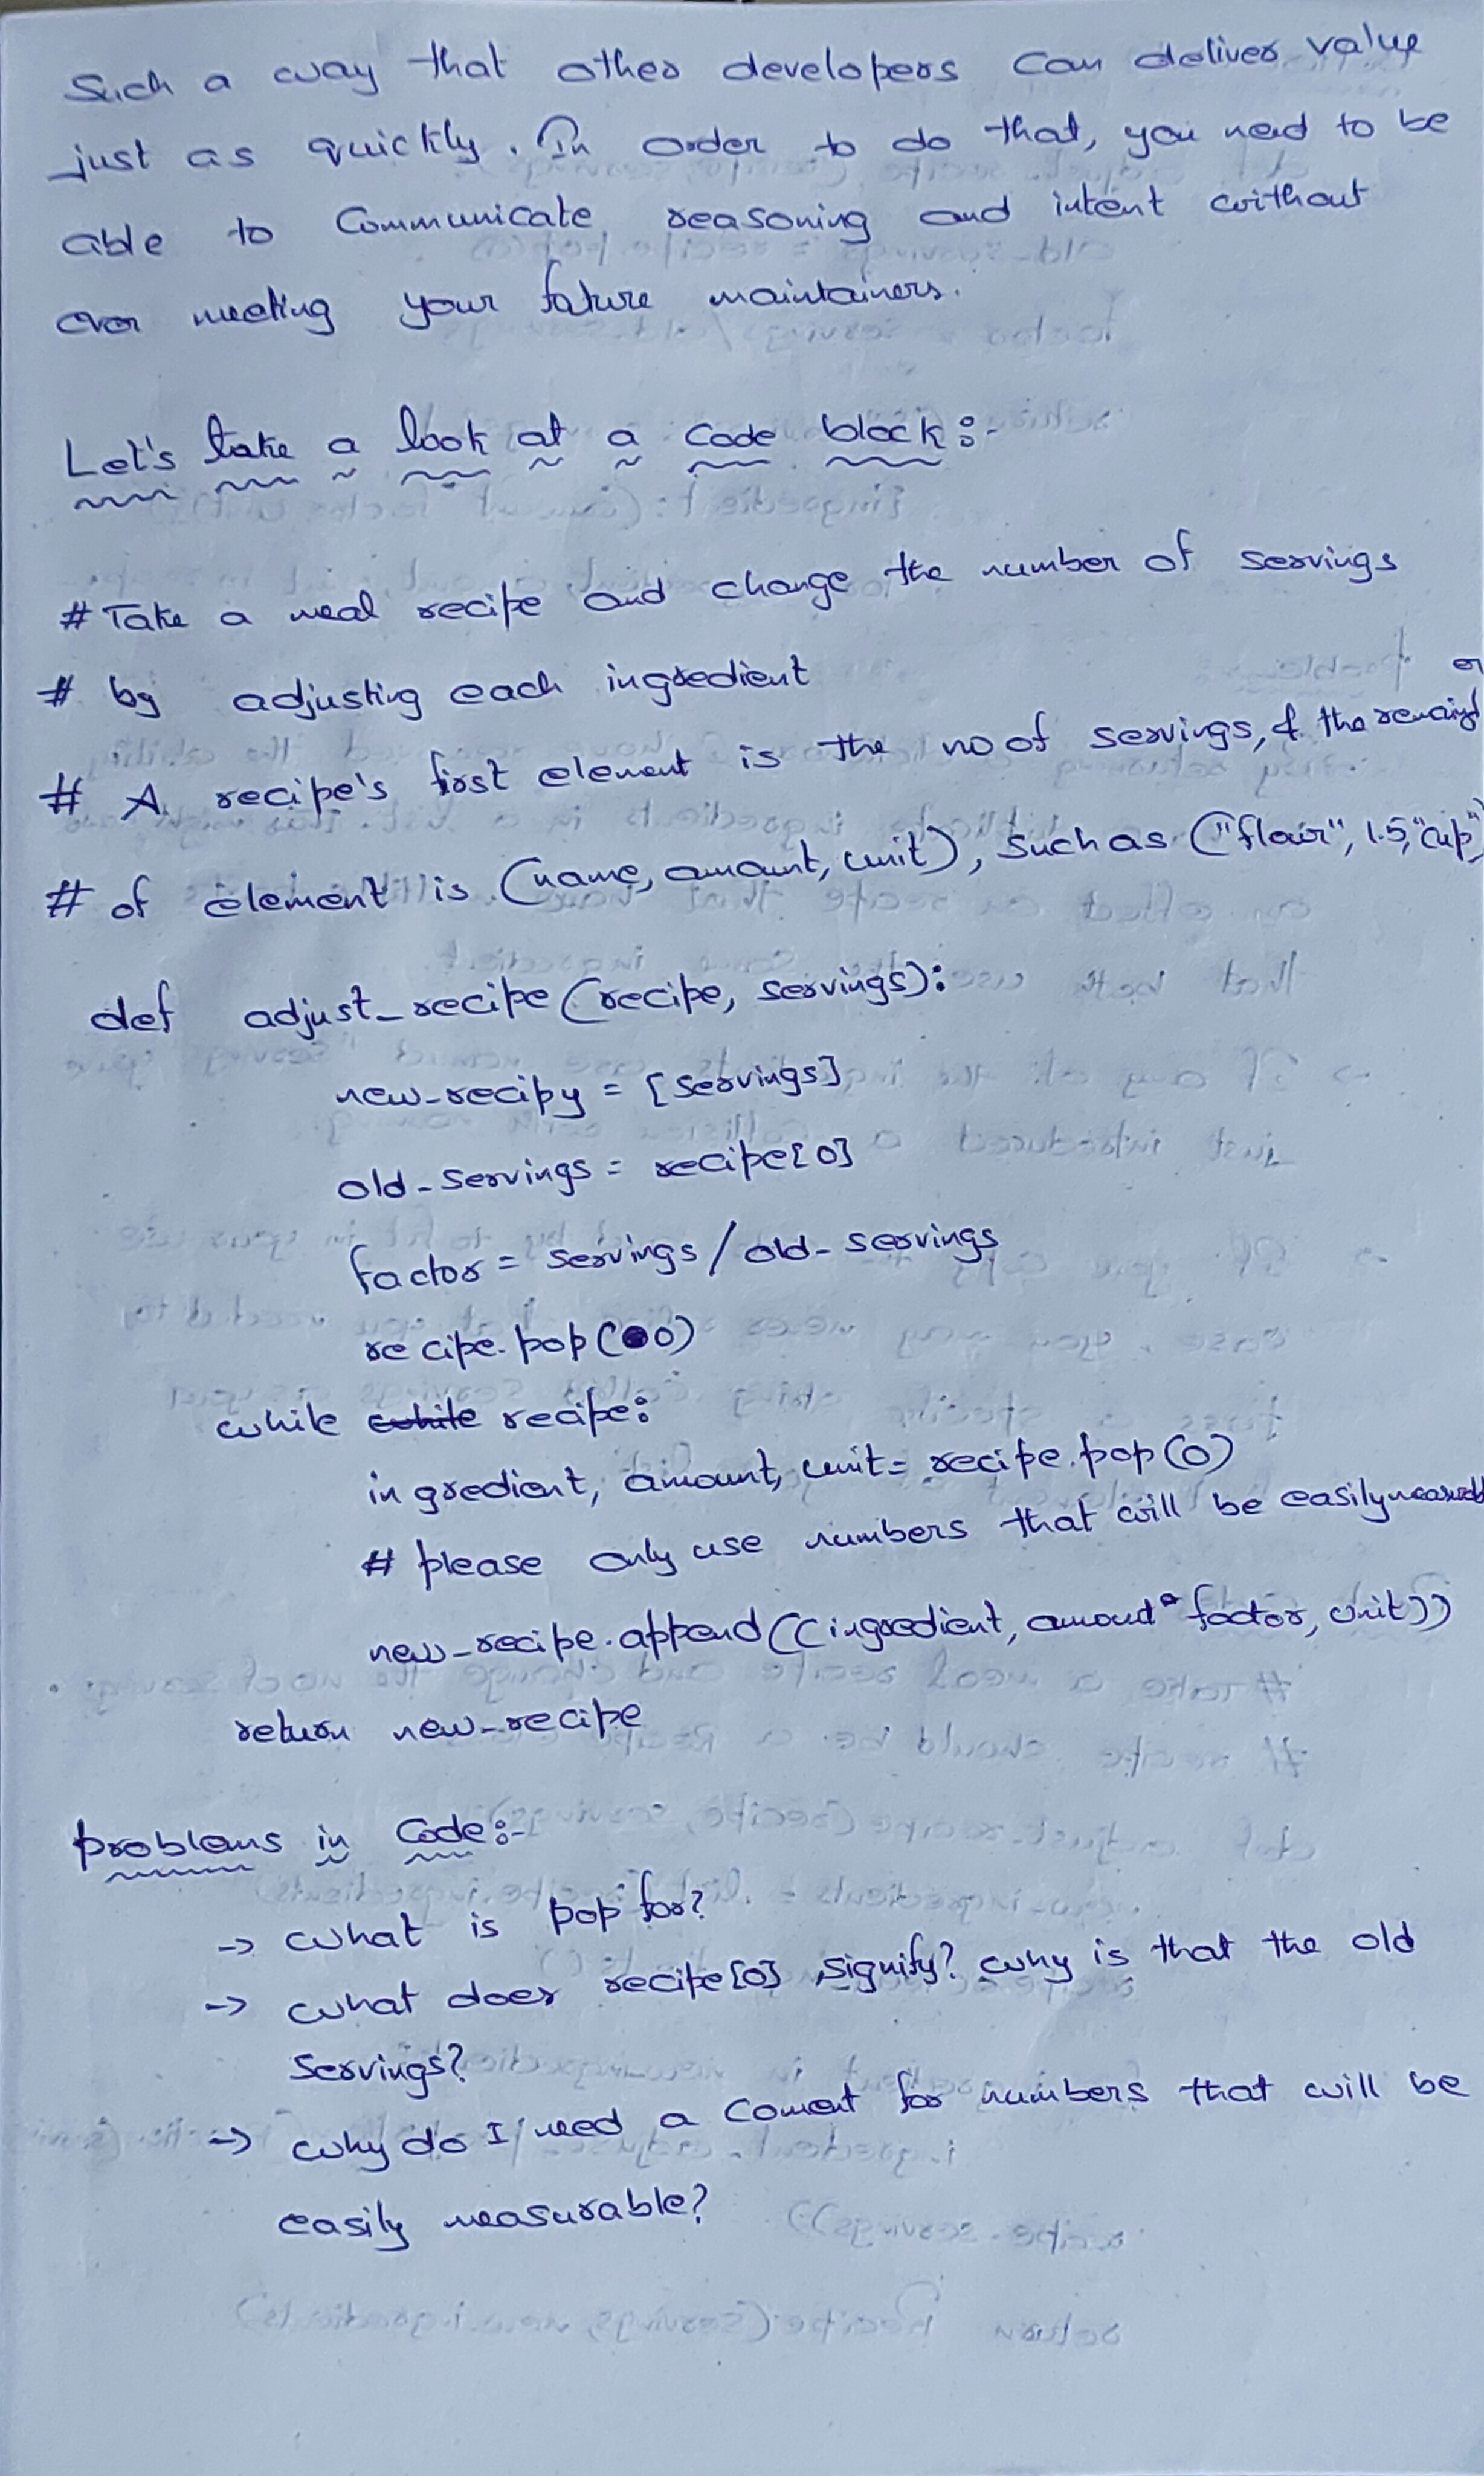 Such a way that other developers can deliver value
just as quickly. In order to do that, you need to be
able to Communicate reasoning and intent without
ever meeting your future maintainers.
Let's take a look at a code block:-
# Take a meal recipe and change the number of servings
# by adjusting each ingredient
# A recipe's first element is the no of servings, & the remaind
er
# of element is (name, amount, unit), such as ("flour", 1.5, "cup")
def adjust_recipe(recipe, servings):
new_recipy = [servings]
old_servings = recipe[0]
factor = servings / old_servings
recipe.pop(0)
while while recipe:
ingredient, amount, unit = recipe.pop(0)
# please only use numbers that will be easily
new_recipe.append((ingredient, amound * factor, unit))
return new_recipe
problems in Code:-
-> what is pop for?
-> what does recipe[0] signify? why is that the old
servings?
-> why do I need a coment for numbers that will be
easily measurable?